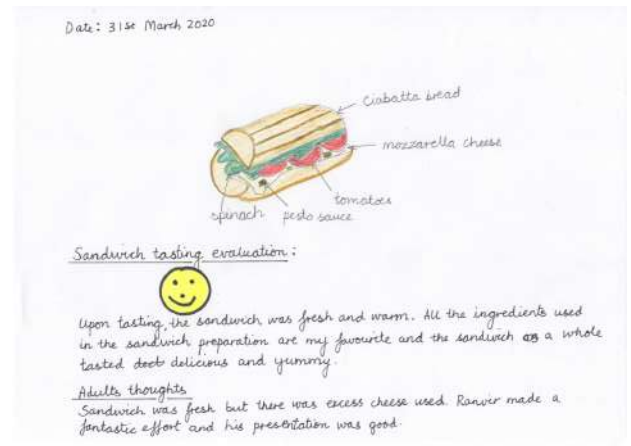 Date: 31st March 2020
Ciabatta bread
mozzarella cheese
tomatoes
spinach pesto sauce
Sandwich tasting evaluation:
Upon tasting, the sandwich was fresh and warm. All the ingredients used
in the sandwich preparation are my favourite and the sandwich as a whole
tasted delicious and yummy.
Adults thoughts
Sandwich was fresh but there was excess cheese used. Ranvir made a
fantastic effort and his presentation was good.